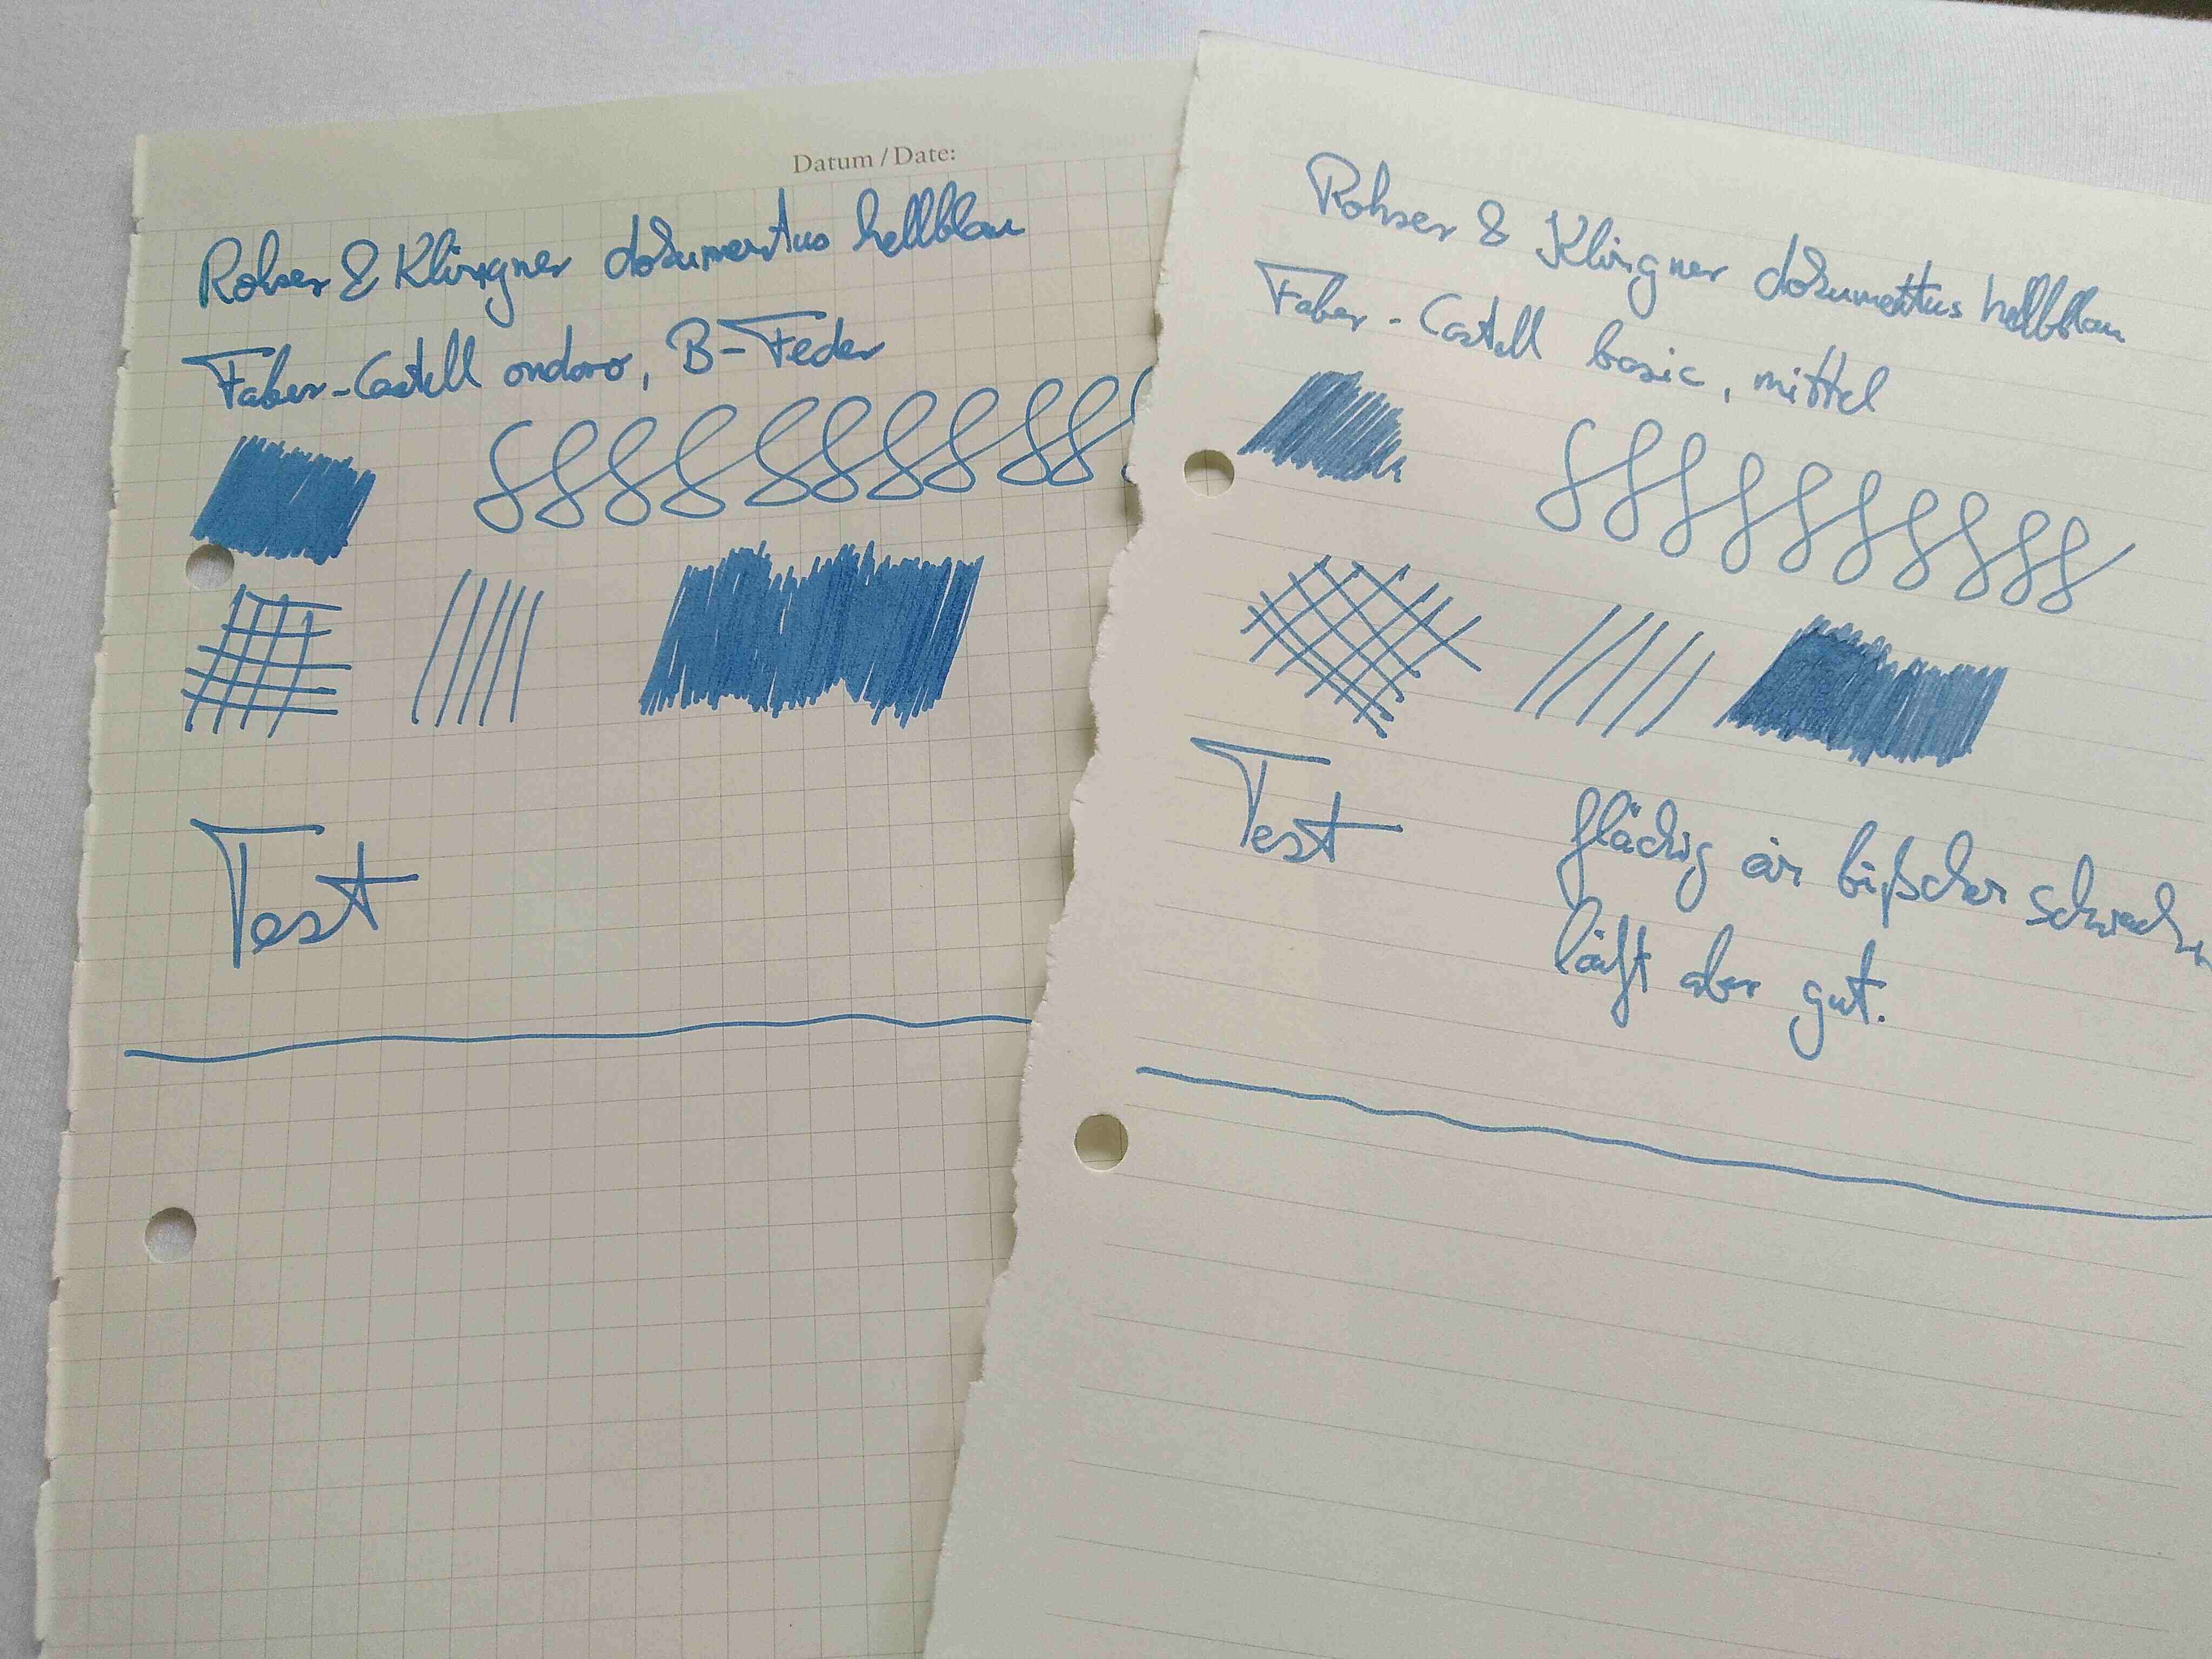 Datum / Date:
Rohrer & Klingner dokumentus hellblau
Faber-Castell ondoro, B-Feder
Test
Rohrer & Klingner dokumentus hellblau
Faber-Castell basic, mittel
Test
flächig ein bißchen schwach,
läuft aber gut.